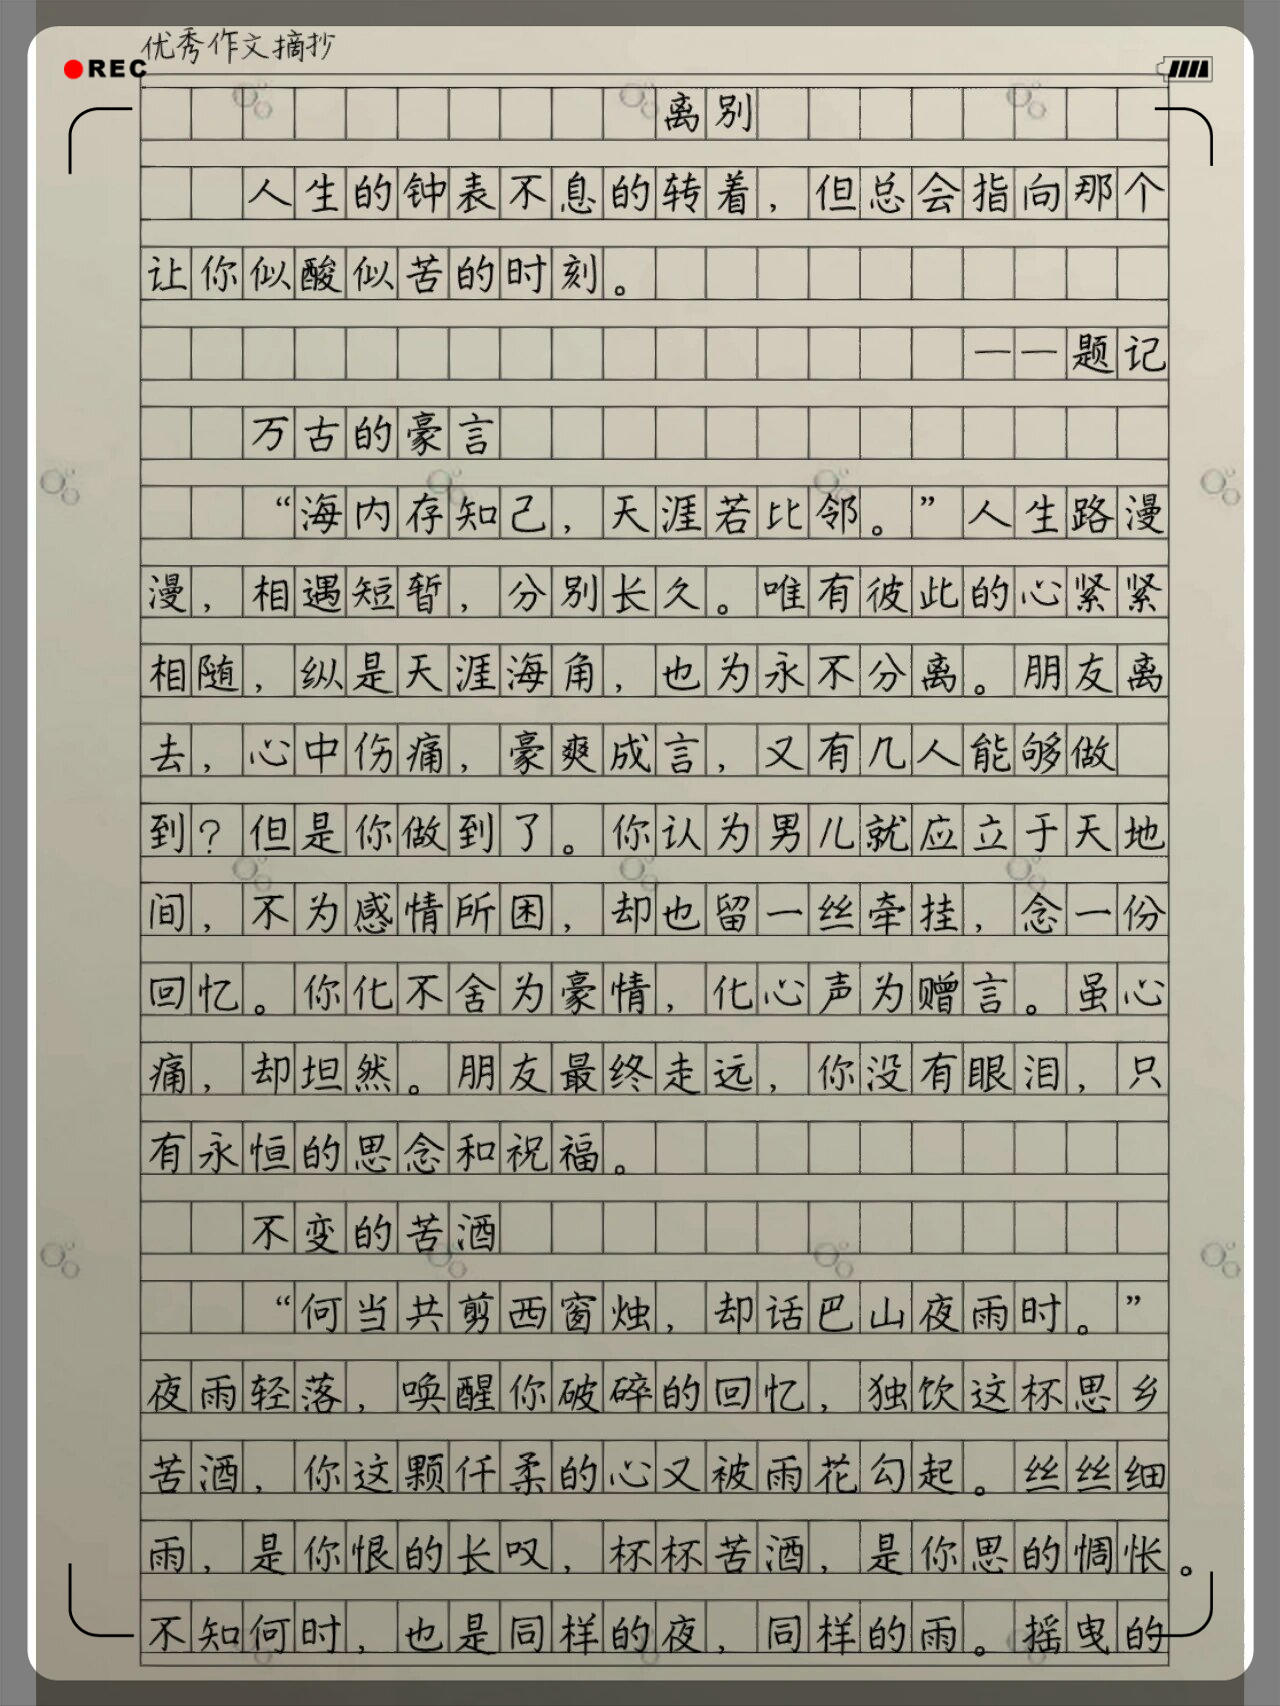 优秀作文摘抄
REC
离别
人生的钟表不息的转着，但总会指向那个
让你似酸似苦的时刻。
——题记
万古的豪言
“海内存知己，天涯若比邻。”人生路漫
漫，相遇短暂，分别长久。唯有彼此的心紧紧
相随，纵是天涯海角，也为永不分离。朋友离
去，心中伤痛，豪爽成言，又有几人能够做
到？但是你做到了。你认为男儿就应立于天地
间，不为感情所困，却也留一丝牵挂，念一份
回忆。你化不舍为豪情，化心声为赠言。虽心
痛，却坦然。朋友最终走远，你没有眼泪，只
有永恒的思念和祝福。
不变的苦酒
“何当共剪西窗烛，却话巴山夜雨时。”
夜雨轻落，唤醒你破碎的回忆，独饮这杯思乡
苦酒，你这颗仟柔的心又被雨花勾起。丝丝细
雨，是你恨的长叹，杯杯苦酒，是你思的惆怅。
不知何时，也是同样的夜，同样的雨。摇曳的